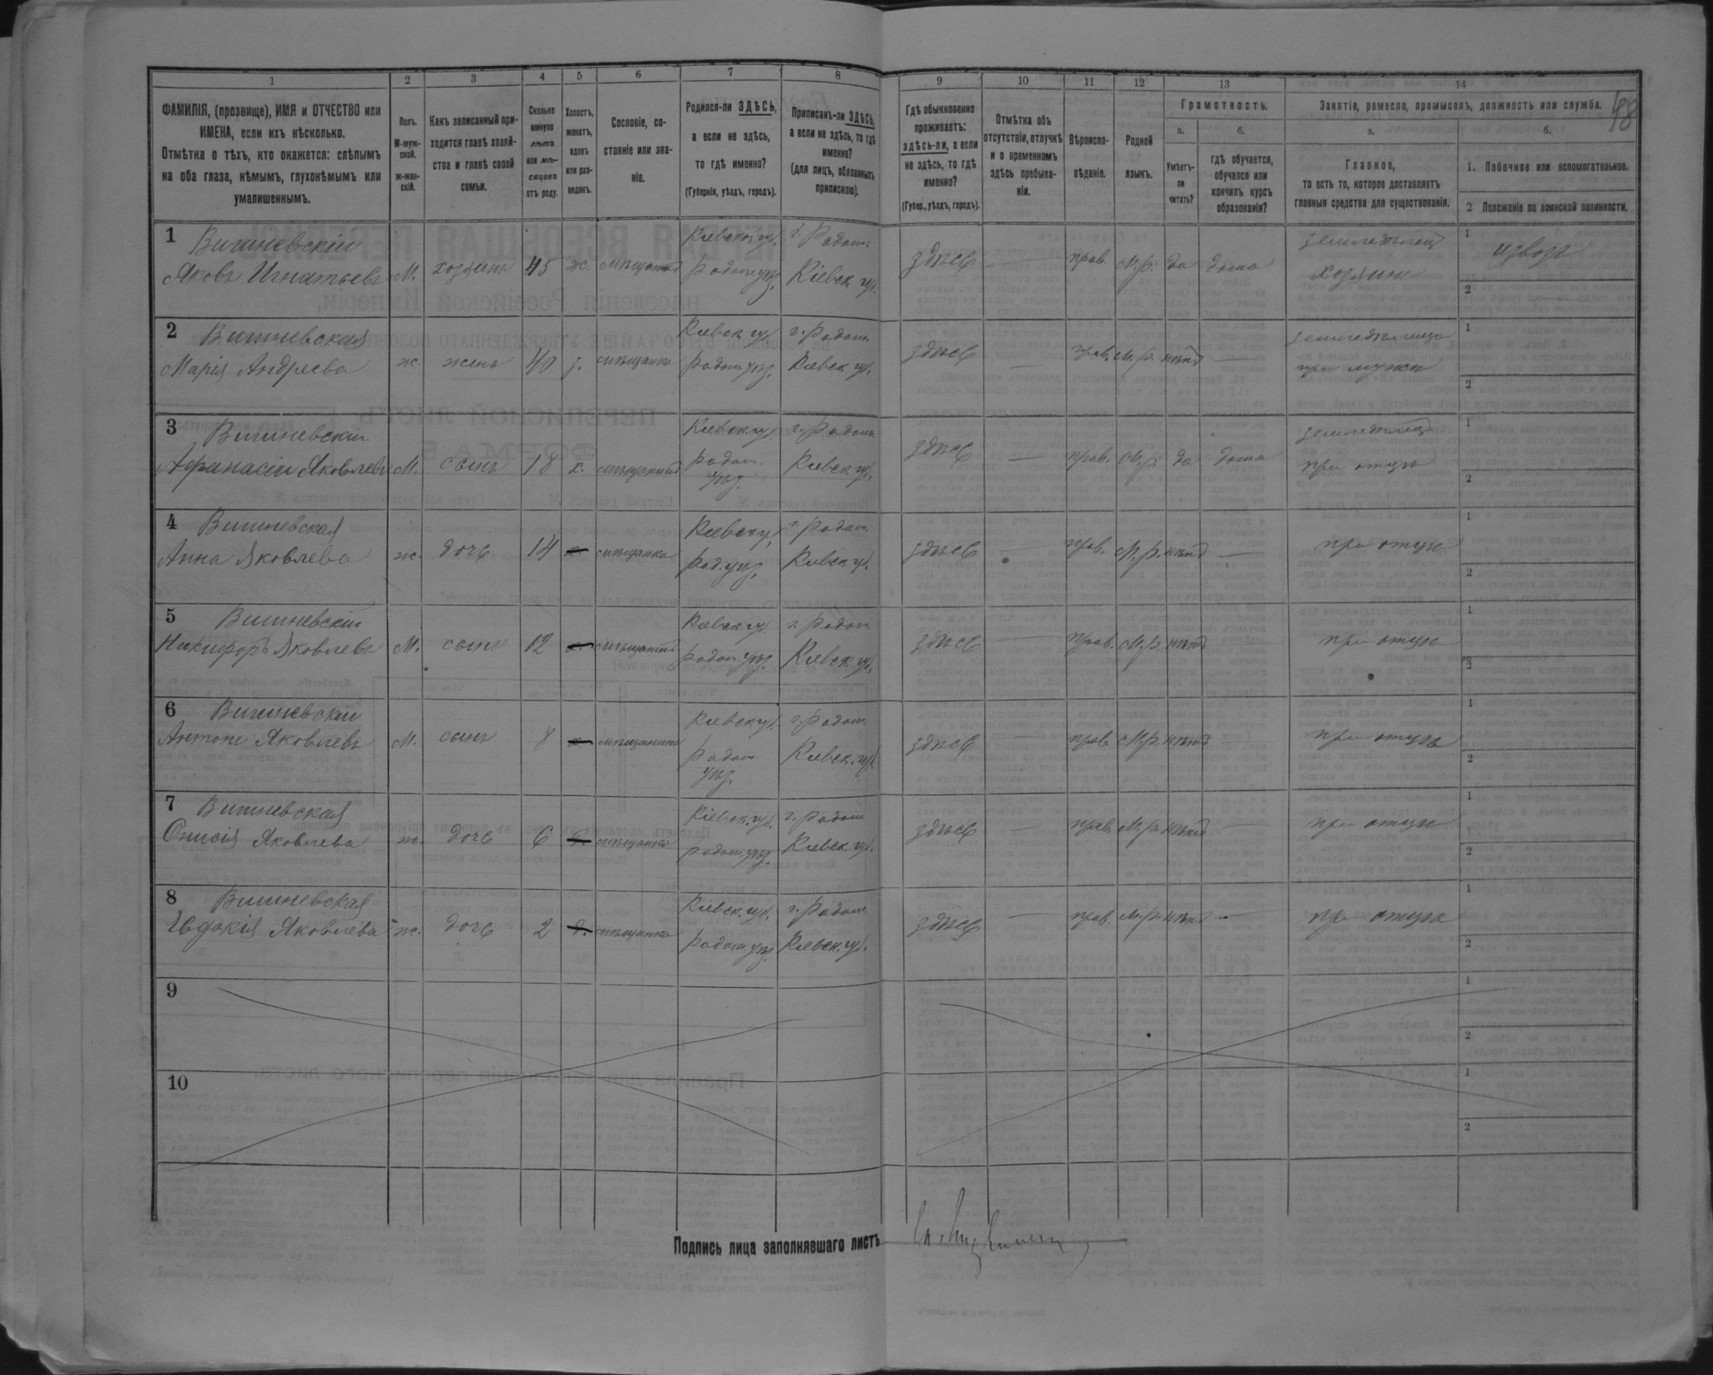 48
1 2 3 4 5 6 7 8 9 10 11 12 13 14
ФАМИЛІЯ, (прозвище), ИМЯ и ОТЧЕСТВО или
ИМЕНА, если ихъ нѣсколько.
Отмѣтка о тѣхъ, кто окажется: слѣпымъ
на оба глаза, нѣмымъ, глухонѣмымъ или
умалишеннымъ.
Полъ.
М-муж-
ской.
ж-жен-
скій.
Какъ записанный при-
ходится главѣ хозяй-
ства и главѣ своей
семьи.
Сколько
минуло
лѣтъ
или мѣ-
сяцевъ
отъ роду.
Холостъ,
женатъ,
вдовъ
или раз-
веденъ.
Сословіе, со-
стояніе или зва-
ніе.
Родился-ли ЗДѢСЬ,
а если не здѣсь,
то гдѣ именно?
(Губернія, уѣздъ, городъ).
Приписанъ-ли ЗДѢСЬ,
а если не здѣсь, то гдѣ
именно?
(для лицъ, обязанныхъ
припискою).
Гдѣ обыкновенно
проживаетъ:
здѣсь-ли, а если
не здѣсь, то гдѣ
именно?
(Губер., уѣздъ, городъ).
Отмѣтка объ
отсутствіи, отлучкѣ
и о временномъ
здѣсь пребыва-
ніи.
Вѣроиспо-
вѣданіе.
Родной
языкъ.
Грамотность.
а.
Умѣетъ-
ли
читать?
б.
гдѣ обучается,
обучался или
кончилъ курсъ
образованія?
Занятіе, ремесло, промыселъ, должность или служба.
а.
Главное,
то есть то, которое доставляетъ
главныя средства для существованія.
б.
1. Побочное или вспомогательное.
2 Положеніе по воинской повинности.
1 Вишневскій Кіевской г. г. Радом. земледѣлец 1
Яковъ Игнатьевъ М. хозяинъ 45 ж. мѣщанинъ Радом. уѣз. Кіевск. гу. здѣсь — прав. М.р. да дома хозяин извоз
2
2 Вишневская Кіевск. гу. г. Радом. 1
Марія Андреева ж. жена 40 з. мѣщанка Радом. уѣз. Кіевск. гу. здѣсь — прав. М.р. нѣтъ — при мужи
2
3 Вишневскій Кіевск. гу. г. Радом. земледѣлец 1
Афанасій Яковлевъ М. сынъ 18 х. мѣщанинъ Радом. уѣз. Кіевск. гу. здѣсь — прав. М.р. да дома при отцѣ
2
4 Вишневская Кіевск. гу. г. Радом. 1
Анна Яковлева ж. дочь 14 мѣщанка Рад. уѣз. Кіевск. гу. здѣсь прав. М.р. нѣтъ — при отцѣ
2
5 Вишневскій Кіевск. гу. г. Радом. 1
Никифоръ Яковлевъ М. сынъ 12 мѣщанинъ Радом. уѣз. Кіевск. гу. здѣсь — прав. М.р. нѣтъ при отцѣ
2
6 Вишневскій Кіевск. гу. г. Радом. 1
Антонъ Яковлевъ М. сынъ 8 мѣщанинъ Радом. уѣз. Кіевск. гу. здѣсь — прав. М.р. нѣтъ при отцѣ
2
7 Вишневская Кіевск. гу. г. Радом. 1
Онисія Яковлева ж. дочь 6 мѣщанка Радом. уѣз. Кіевск. гу. здѣсь — прав. М.р. нѣтъ — при отцѣ
2
8 Вишневская Кіевск. гу. г. Радом. 1
Евдокія Яковлева ж. дочь 2 мѣщанка Радом. уѣз. Кіевск. гу. здѣсь — прав. М.р. нѣтъ — при отцѣ
2
9 1
2
10 1
2
Подпись лица заполнявшаго листъ